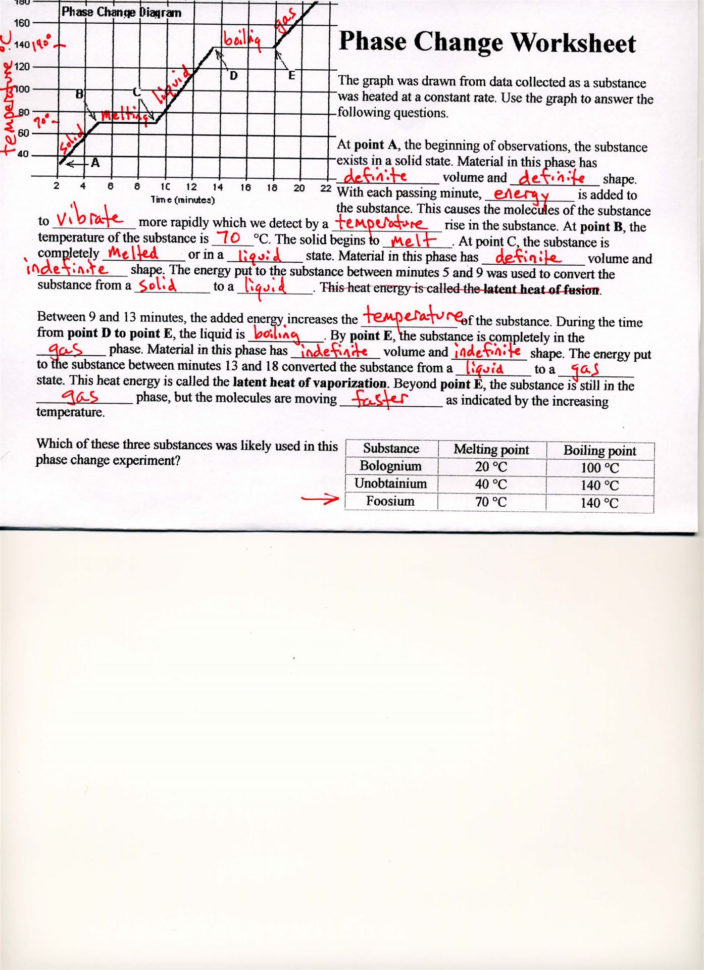 180
Phase Change Diagram
160
140 140°
120
100
80
70°
60
40
temperature °C
solid
melting
liquid
boiling
gas
A
B
C
D
E
2 4 6 8 10 12 14 16 18 20 22
Time (minutes)
Phase Change Worksheet
The graph was drawn from data collected as a substance
was heated at a constant rate. Use the graph to answer the
following questions.
At point A, the beginning of observations, the substance
exists in a solid state. Material in this phase has
definite volume and definite shape.
With each passing minute, energy is added to
the substance. This causes the molecules of the substance
to vibrate more rapidly which we detect by a temperature rise in the substance. At point B, the
temperature of the substance is 70 °C. The solid begins to melt. At point C, the substance is
completely Melted or in a liquid state. Material in this phase has definite volume and
indefinite shape. The energy put to the substance between minutes 5 and 9 was used to convert the
substance from a Solid to a liquid. This heat energy is called the latent heat of fusion.
Between 9 and 13 minutes, the added energy increases the temperature of the substance. During the time
from point D to point E, the liquid is boiling. By point E, the substance is completely in the
gas phase. Material in this phase has indefinite volume and indefinite shape. The energy put
to the substance between minutes 13 and 18 converted the substance from a liquid to a gas
state. This heat energy is called the latent heat of vaporization. Beyond point E, the substance is still in the
gas phase, but the molecules are moving faster as indicated by the increasing
temperature.
Which of these three substances was likely used in this
phase change experiment?
Substance Melting point Boiling point
Bolognium 20 °C 100 °C
Unobtainium 40 °C 140 °C
Foosium 70 °C 140 °C